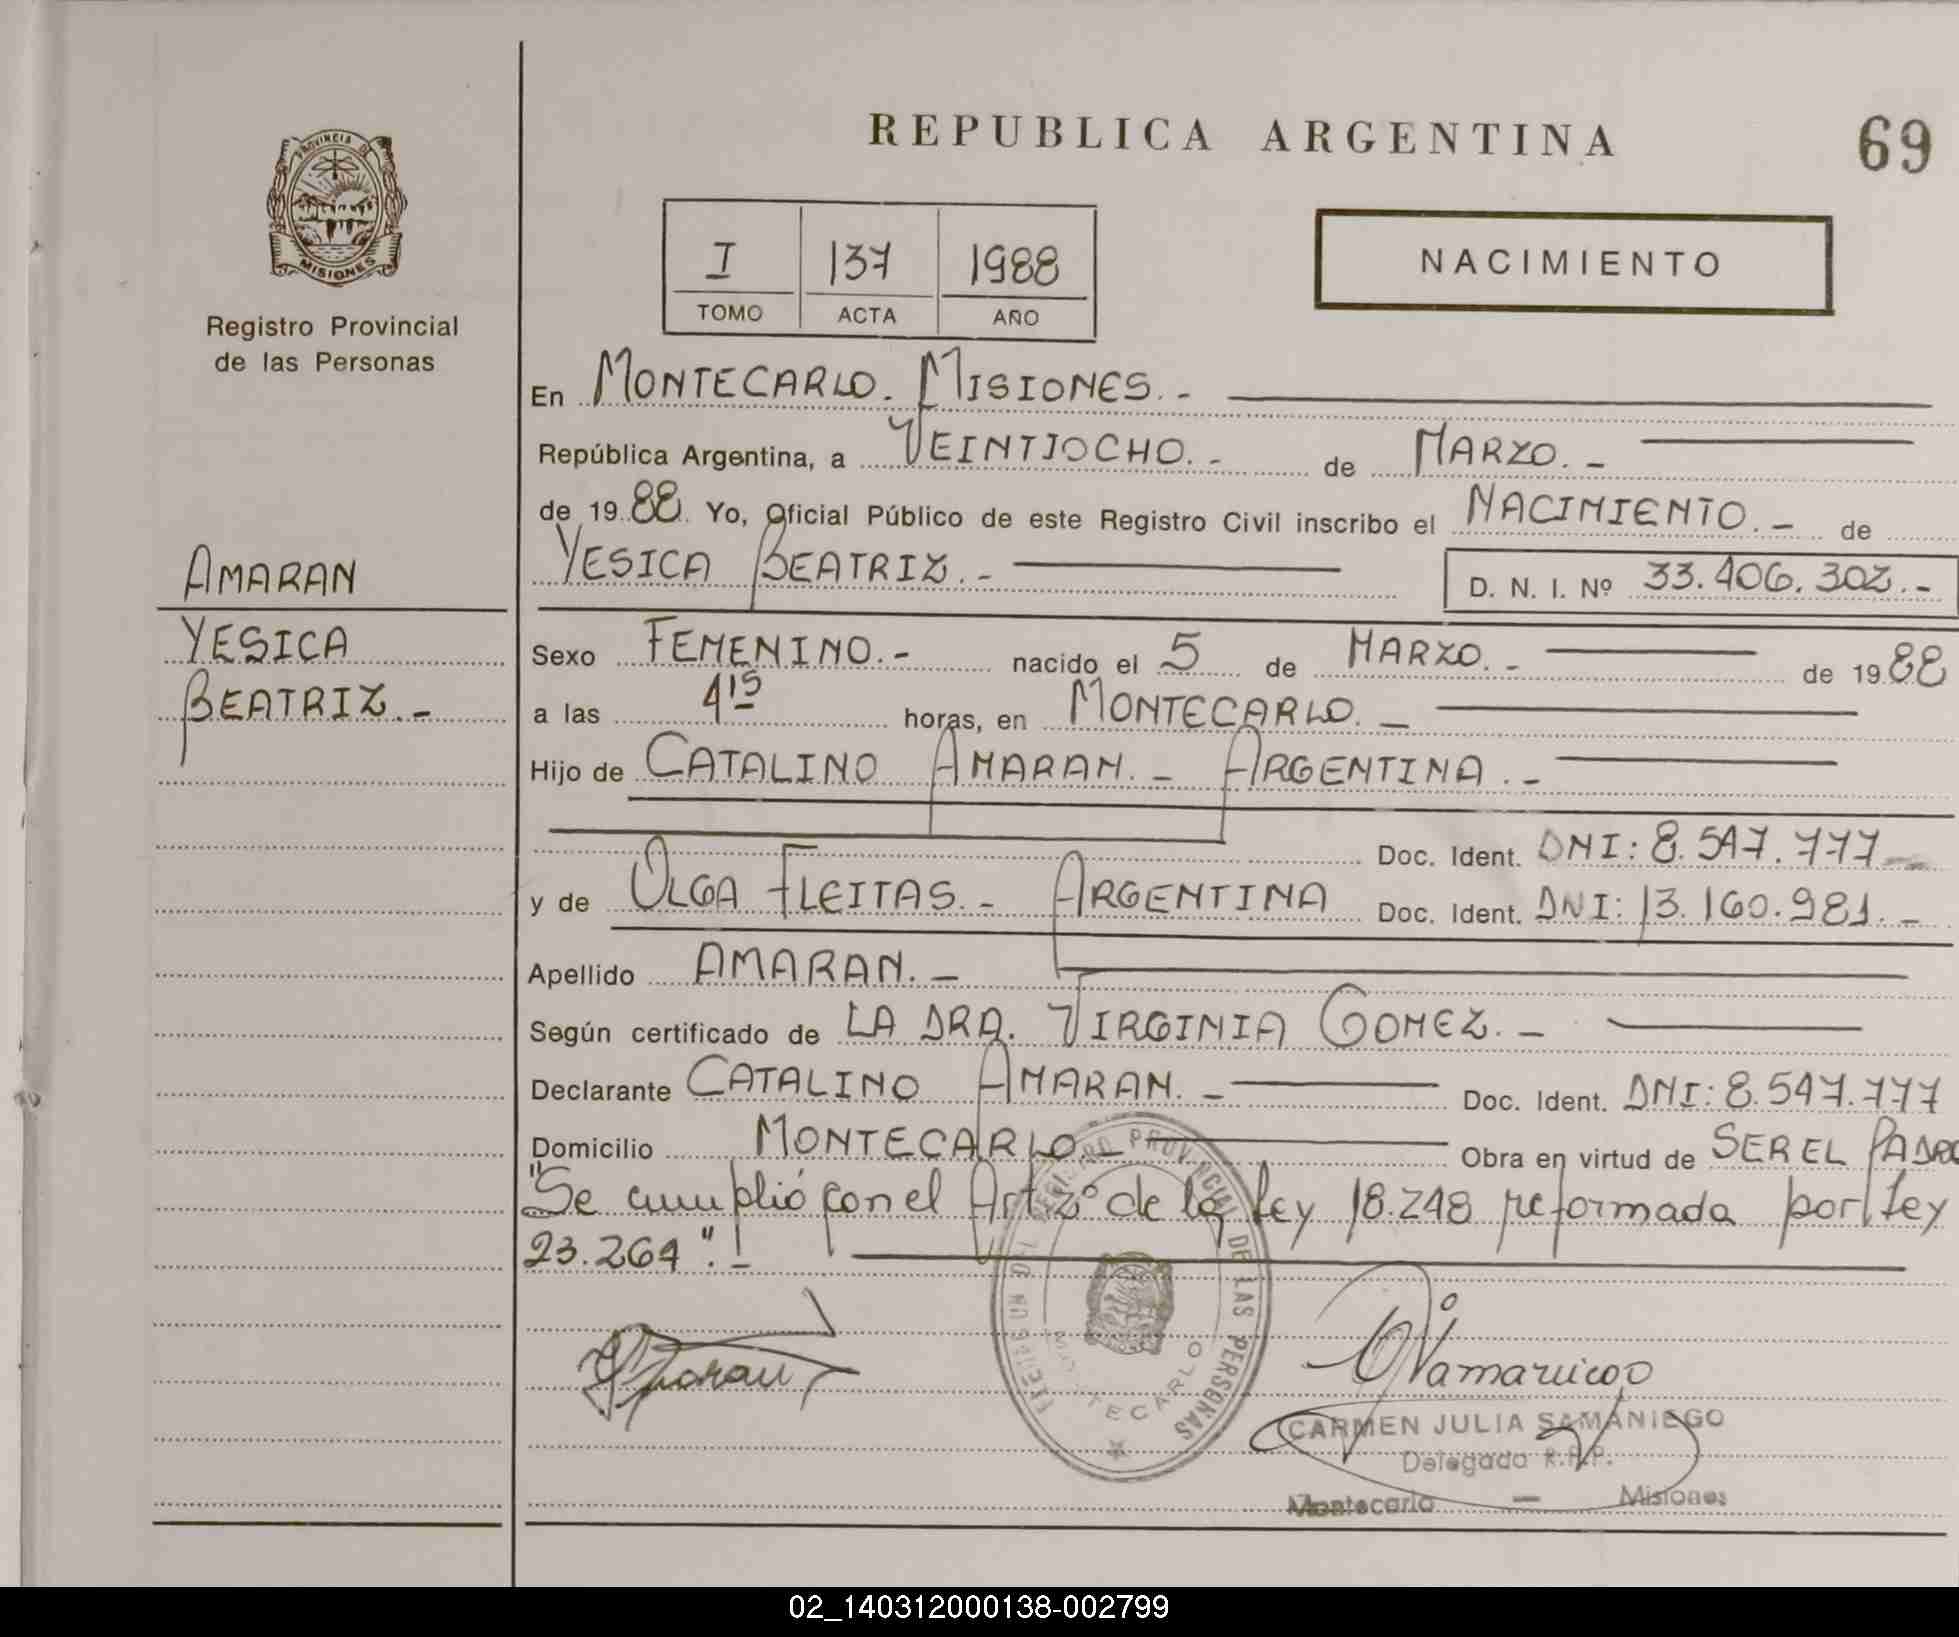 REPUBLICA ARGENTINA
69
PROVINCIA DE
MISIONES
Registro Provincial
de las Personas
I 137 1988
TOMO ACTA AÑO
NACIMIENTO
En MONTECARLO. MISIONES.-
República Argentina, a VEINTIOCHO.- de MARZO.-
de 1988. Yo, Oficial Público de este Registro Civil inscribo el NACIMIENTO.- de
YESICA BEATRIZ.-
D. N. I. Nº 33.406.302.-
AMARAN
YESICA
BEATRIZ.-
Sexo FEMENINO.- nacido el 5 de MARZO.- de 1988
a las 4 15 horas, en MONTECARLO.-
Hijo de CATALINO AMARAN.- ARGENTINA.-
Doc. Ident. DNI: 8.547.777
y de OLGA FLEITAS.- ARGENTINA Doc. Ident. DNI: 13.160.981.-
Apellido AMARAN.-
Según certificado de LA DRA. VIRGINIA GOMEZ.-
Declarante CATALINO AMARAN.- Doc. Ident. DNI: 8.547.777
Domicilio MONTECARLO.- Obra en virtud de SER EL PADRE
"Se cumplió con el Art 2º de la Ley 18.248 reformada por Ley
23.264".-
REGISTRO PROVINCIAL DE LAS PERSONAS
MONTECARLO
CARMEN JULIA SAMANIEGO
Delegada R.P.P.
Montecarlo — Misiones
02_140312000138-002799